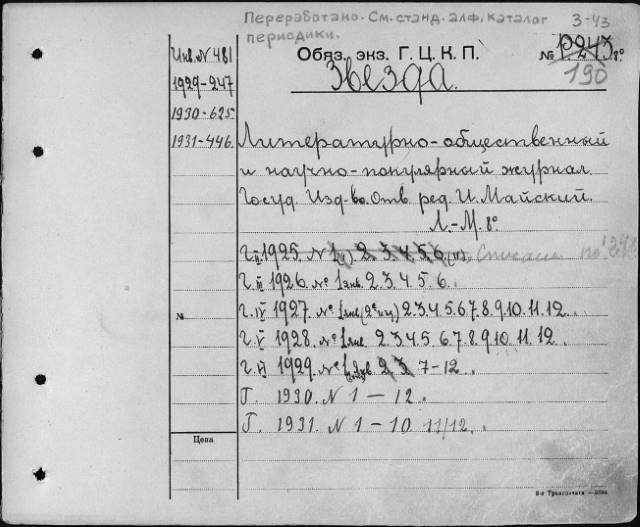 Переработано. См. станд. алф. каталог З-43
периодики.
Инв. N 481 Обяз. экз. Г. Ц. К. П. № P.243 8º
1929-247 Звезда. 190
1930-625
1931-446. Литературно-общественный
и научно-популярный журнал.
Госуд. Изд-во. Отв. ред. И. Майский.
Л.-М. 8º
Г. II 1925. N 1 2. 3. 4. 5. 6. Списан по
Г. III 1926. № 1 янв. 2. 3. 4. 5. 6.
№ Г. IV 1927. № 1 янв. 2. 3. 4. 5. 6. 7. 8. 9. 10. 11. 12.
Г. V 1928. № 1 янв. 2. 3. 4. 5. 6. 7. 8. 9. 10. 11. 12.
Г. VI 1929. № 1 янв. 2. 3. 7-12.
Г. 1930. N 1 — 12.
Г. 1931. N 1 - 10. 11/12.
Цена